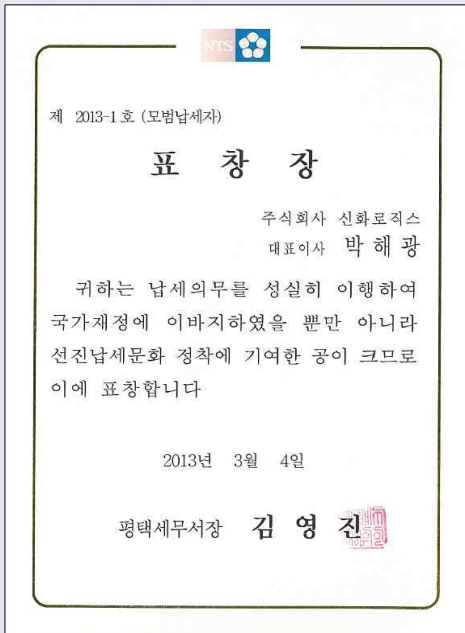 NTS
제 2013-1 호 (모범납세자)
표 창 장
주식회사 신화로직스
대표이사 박 해 광
귀하는 납세의무를 성실히 이행하여
국가재정에 이바지하였을 뿐만 아니라
선진납세문화 정착에 기여한 공이 크므로
이에 표창합니다
2013년 3월 4일
평택세무서장 김 영 진